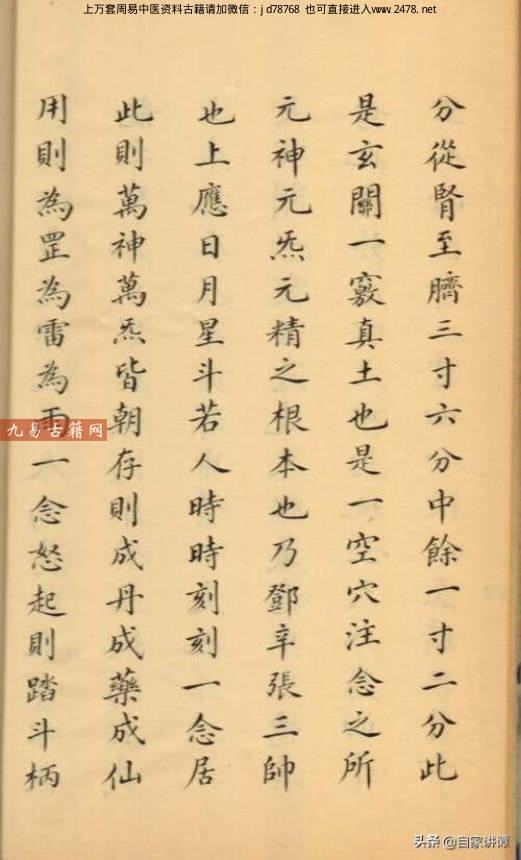 上万套周易中医资料古籍请加微信：jd78768 也可直接进入www.2478.net
分從腎至臍三寸六分中餘一寸二分此
是玄關一竅真土也是一空穴注念之所
元神元炁元精之根本也乃鄧辛張三帥
也上應日月星斗若人時時刻刻一念居
此則萬神萬炁皆朝存則成丹成藥成仙
用則為罡為雷為雨一念怒起則踏斗柄
九易古籍网
头条 @自家讲谭